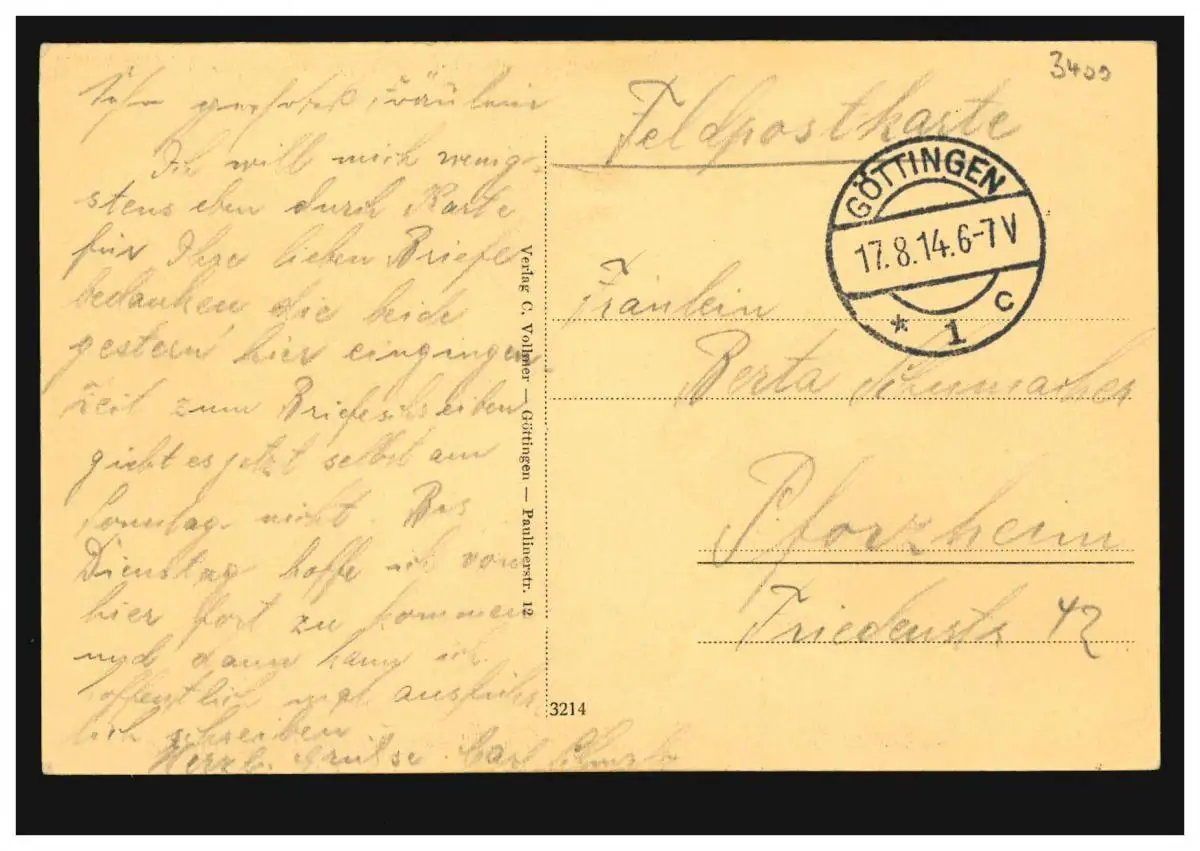 3400
Feldpostkarte
GÖTTINGEN
17.8.14.6-7V
* 1 c
geehrtes Fräulein
Ich will mich wenig-
stens eben durch Karte
für Ihre lieben Briefe
bedanken, die beide
gestern hier eingingen.
Zeit zum Briefeschreiben
giebt es jetzt selbst am
Sonntag nicht. Bis
Dienstag hoffe ich von
hier fort zu kommen
und dann kann ich
hoffentlich mal ausführ-
lich schreiben
Herzl. Grüsse Carl
Verlag C. Vollmer — Göttingen — Paulinerstr. 12
3214
Fräulein
Berta Schumacher
Pforzheim
Friedenstr 42